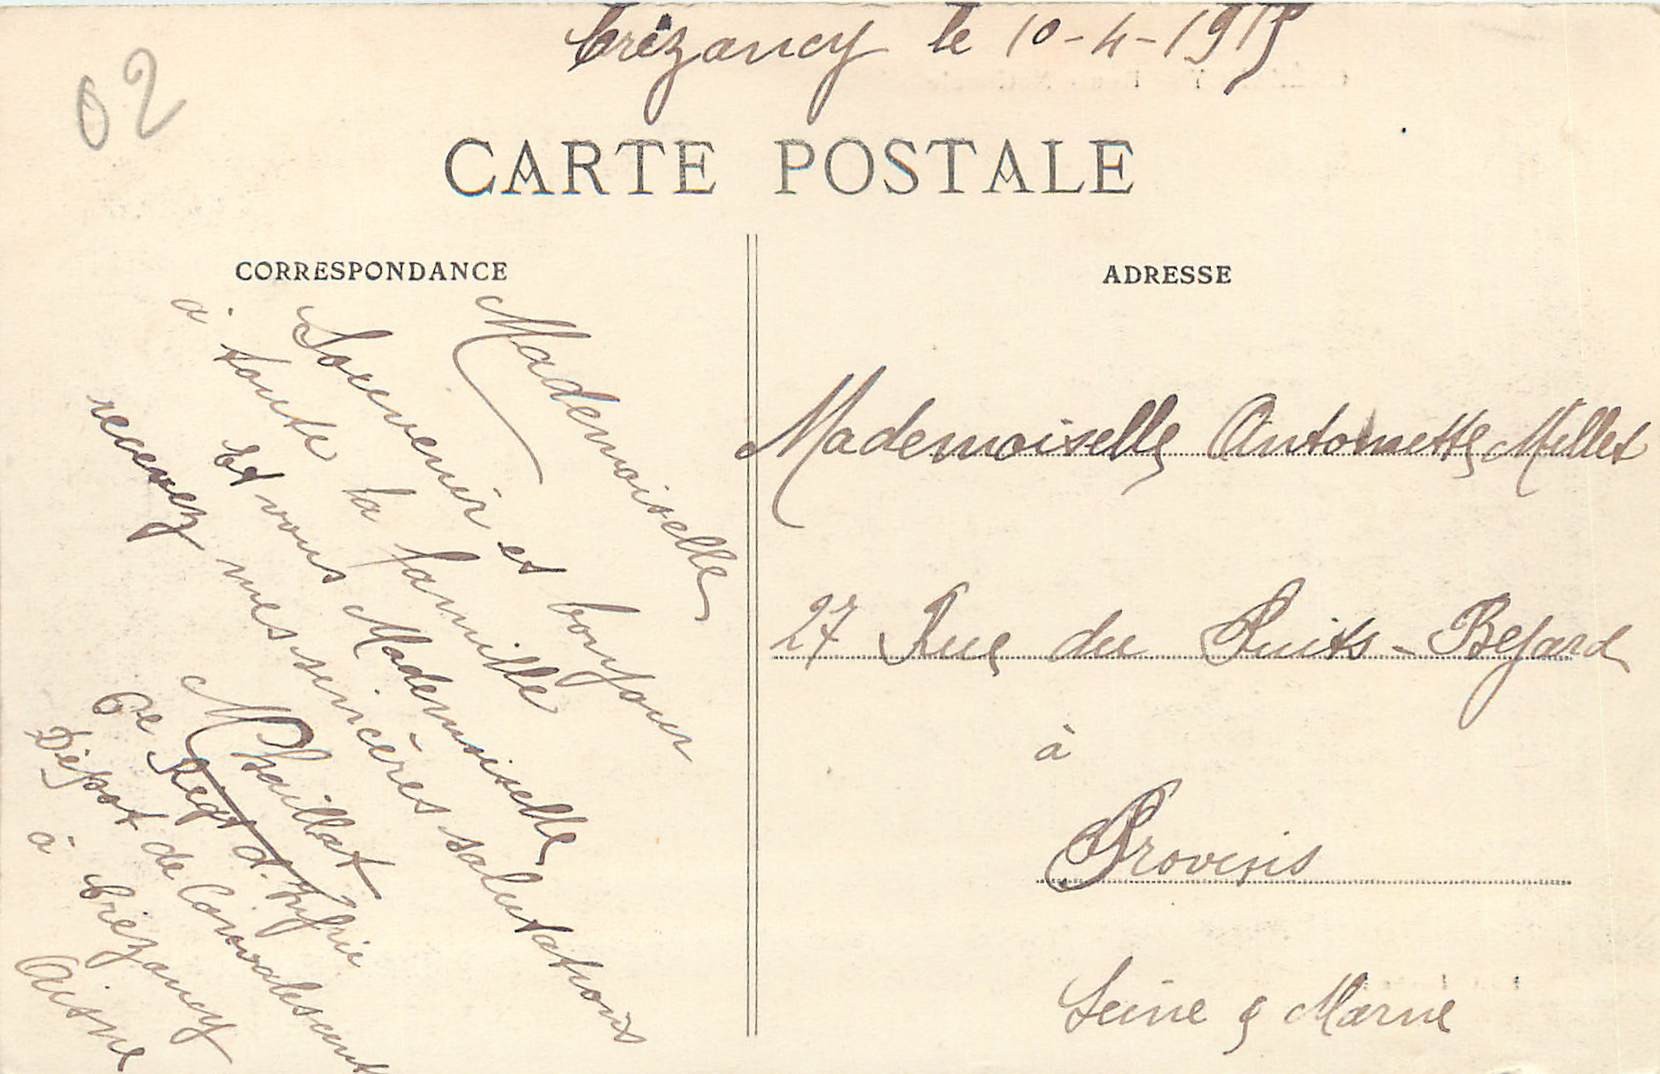 02
Crézancy le 10-4-1915
CARTE POSTALE
CORRESPONDANCE
Mademoiselle
Souvenir et bonjour
à toute la famille
Et vous Mademoiselle
recevez mes sincères salutations
M Chaillat
6e Regt d'Infrie
Dépot de Convalescents
à Crézancy
Aisne
ADRESSE
Mademoiselle Antoinette Millet
27 Rue du Puits-Bejard
à
Provins
Seine & Marne